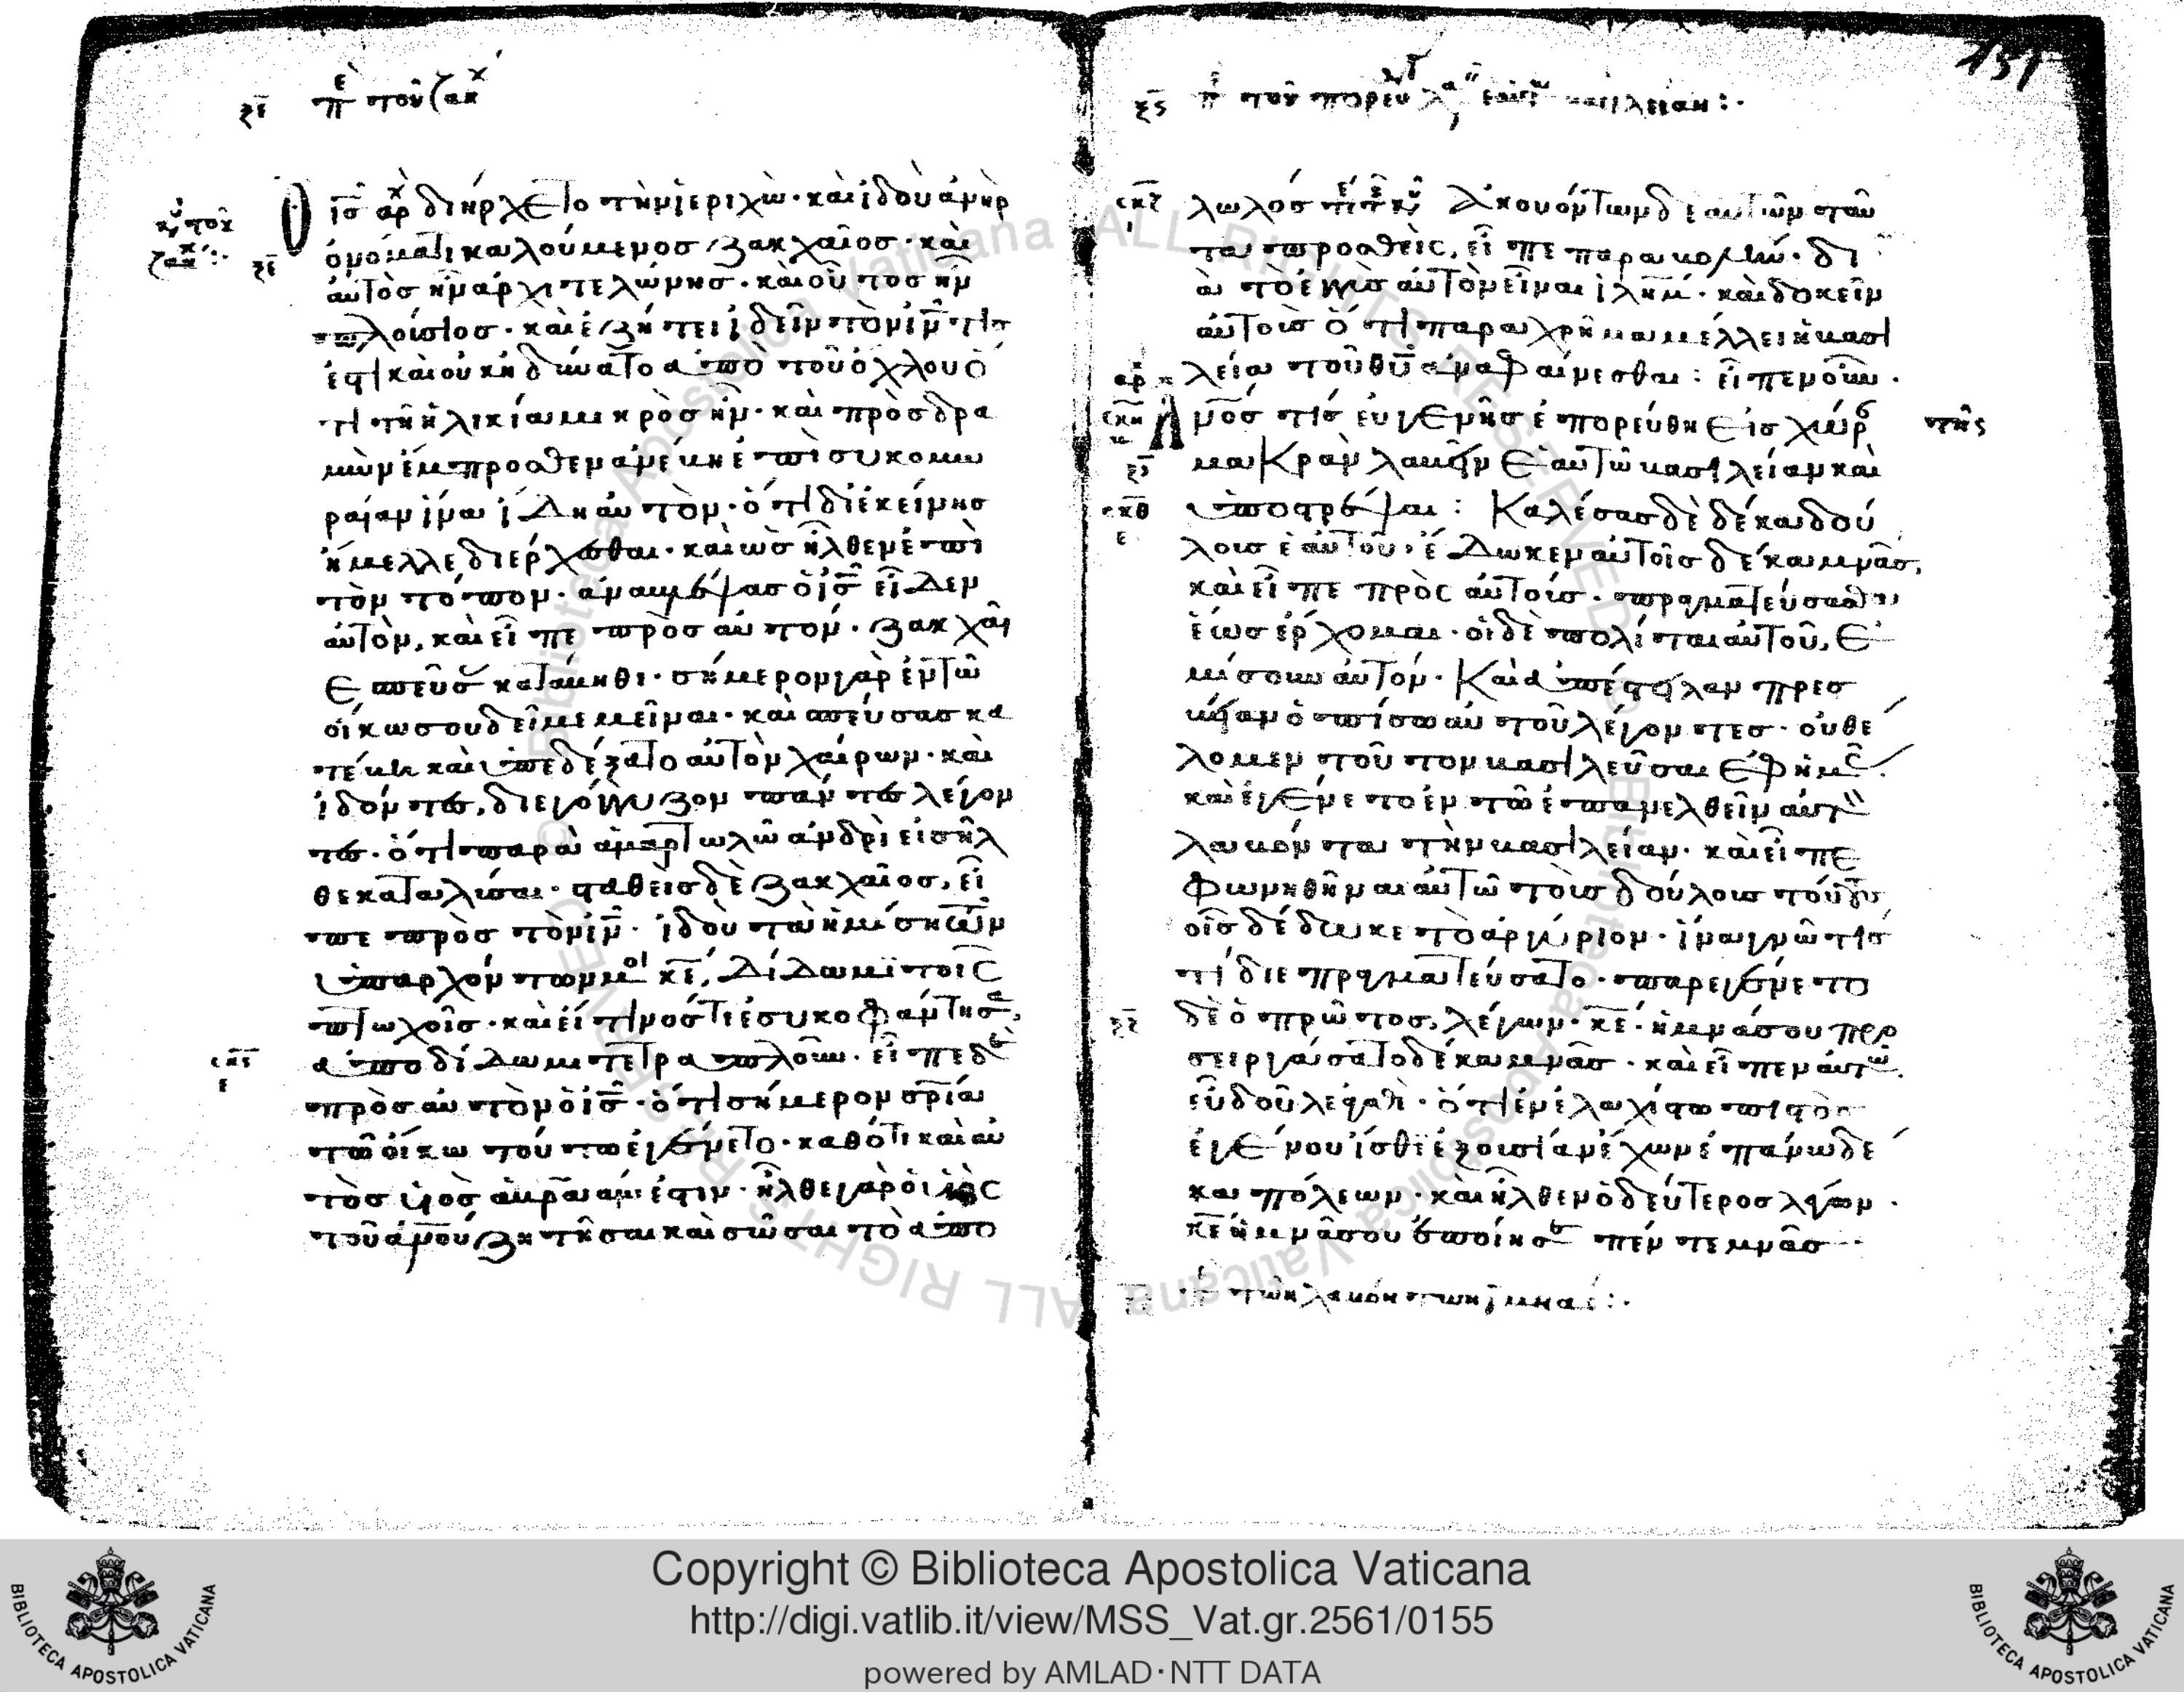 ξε πε του ζακχ
Ο ις αρ διήρχετο τὴν ἱεριχώ· καὶ ἰδοὺ ἀνὴρ
κυ του
ζακχ:·
ὀνόματι καλούμενος ζακχαῖος· καὶ
ξε
αὐτὸς ἦν ἀρχιτελώνης· καὶ οὗτος ἦν
πλούσιος· καὶ ἐζήτει ἰδεῖν τὸν ἰν τίς
ἐστι καὶ οὐκ ἠδύνατο ἀπὸ τοῦ ὄχλου ὅ
τι τῆ ἡλικία μικρὸς ἦν· καὶ προσδρα
μὼν ἔμπροσθεν ἀνέβη ἐπὶ συκομω
ραίαν ἵνα ἴδη αὐτόν· ὅτι δι ἐκείνης
ἤμελλε διέρχεσθαι· καὶ ὡς ἦλθεν ἐπὶ
τὸν τόπον· ἀναβλέψας ὁ ις εἶδεν
αὐτόν, καὶ εἶπε πρὸς αὐτόν· ζακχαῖ
ε σπεύσ κατάβηθι· σήμερον γὰρ ἐν τῶ
οἴκω σου δεῖ με μεῖναι· καὶ σπεύσας κα
τέβη καὶ ὑπεδέξατο αὐτὸν χαίρων· καὶ
ἰδόντες, διεγόγγυζον πάντες λέγον
τες· ὅτι παρὰ ἁμαρτωλῶ ἀνδρὶ εἰσῆλ
θε καταλῦσαι· σταθεὶς δὲ ζακχαῖος, εἶ
πε πρὸς τὸν ιν· ἰδοὺ τὰ ἡμίση τῶν
ὑπαρχόντων μοι κε, δίδωμι τοῖς
πτωχοῖς· καὶ εἴ τινός τι ἐσυκοφάντησα,
ἀποδίδωμι τετραπλοῦν. εἶπε δὲ
σκς
ε
πρὸς αὐτὸν ὁ ις· ὅτι σήμερον σρία
τῶ οἴκω τούτω ἐγένετο· καθότι καὶ αὐ
τὸς υἱὸς ἀβραάμ ἐστιν· ἦλθε γὰρ ὁ υἱὸς
τοῦ ἀνου ζητῆσαι καὶ σῶσαι τὸ ἀπο
151
ξς
σκζ
λωλός Ἀκουόντων δὲ αὐτῶν ταῦ
τα προσθεὶς, εἶπε παραβολήν· δι
ὰ τὸ ἐγγὺς αὐτὸν εἶναι ιλημ· καὶ δοκεῖν
αὐτοὺς ὅτι παραχρῆμα μέλλει ἡ βασι
λεία τοῦ θυ ἀναφαίνεσθαι: εἶπεν οὖν·
σκη
Ανός τις εὐγενὴς ἐπορεύθη εἰς χώρ
ξς
μακρὰν λαβεῖν ἑαυτῶ βασιλείαν καὶ
σκθ
ε
ὑποστρέψαι: Καλέσας δὲ δέκα δού
λους ἑαυτοῦ· ἔδωκεν αὐτοῖς δέκα μνᾶς,
καὶ εἶπε πρὸς αὐτούς· πραγματεύσασθαι
ἕως ἔρχομαι· οἱ δὲ πολίται αὐτοῦ, ἐ
μίσουν αὐτόν· Καὶ ἀπέστειλαν πρεσ
βείαν ὀπίσω αὐτοῦ λέγοντες· οὐ θέ
λομεν τοῦτον βασιλεῦσαι ἐφ ἡμᾶς.
καὶ ἐγένετο ἐν τῶ ἐπανελθεῖν αὐτὸν
λαβόντα τὴν βασιλείαν· καὶ εἶπε
φωνηθῆναι αὐτῶ τοὺς δούλους τούτους
οἷς δέδωκε τὸ ἀργύριον· ἵνα γνῶ τίς
τί διεπραγματεύσατο· παρεγένετο
ξζ
δὲ ὁ πρῶτος, λέγων· κε· ἡ μνᾶ σου προ
σειργάσατο δέκα μνᾶς· καὶ εἶπεν αὐτῶ.
εὖ δοῦλε ἀγαθέ· ὅτι ἐν ἐλαχίστω πιστὸς
ἐγένου ἴσθι ἐξουσίαν ἔχων ἐπάνω δέ
κα πόλεων· καὶ ἦλθεν ὁ δεύτερος λέγων·
κε ἡ μνᾶ σου ἐποίησε πέντε μνᾶς
Copyright © Biblioteca Apostolica Vaticana
http://digi.vatlib.it/view/MSS_Vat.gr.2561/0155
powered by AMLAD·NTT DATA
BIBLIOTECA APOSTOLICA VATICANA
BIBLIOTECA APOSTOLICA VATICANA